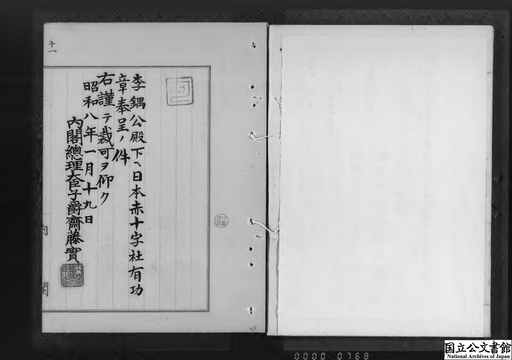 李鍝公殿下ヘ日本赤十字社有功
章奉呈ノ件
右謹テ裁可ヲ仰ク
昭和八年一月十九日
內閣總理大臣子爵齋藤實
內
閣
国立公文書館
National Archives of Japan
0000 0768